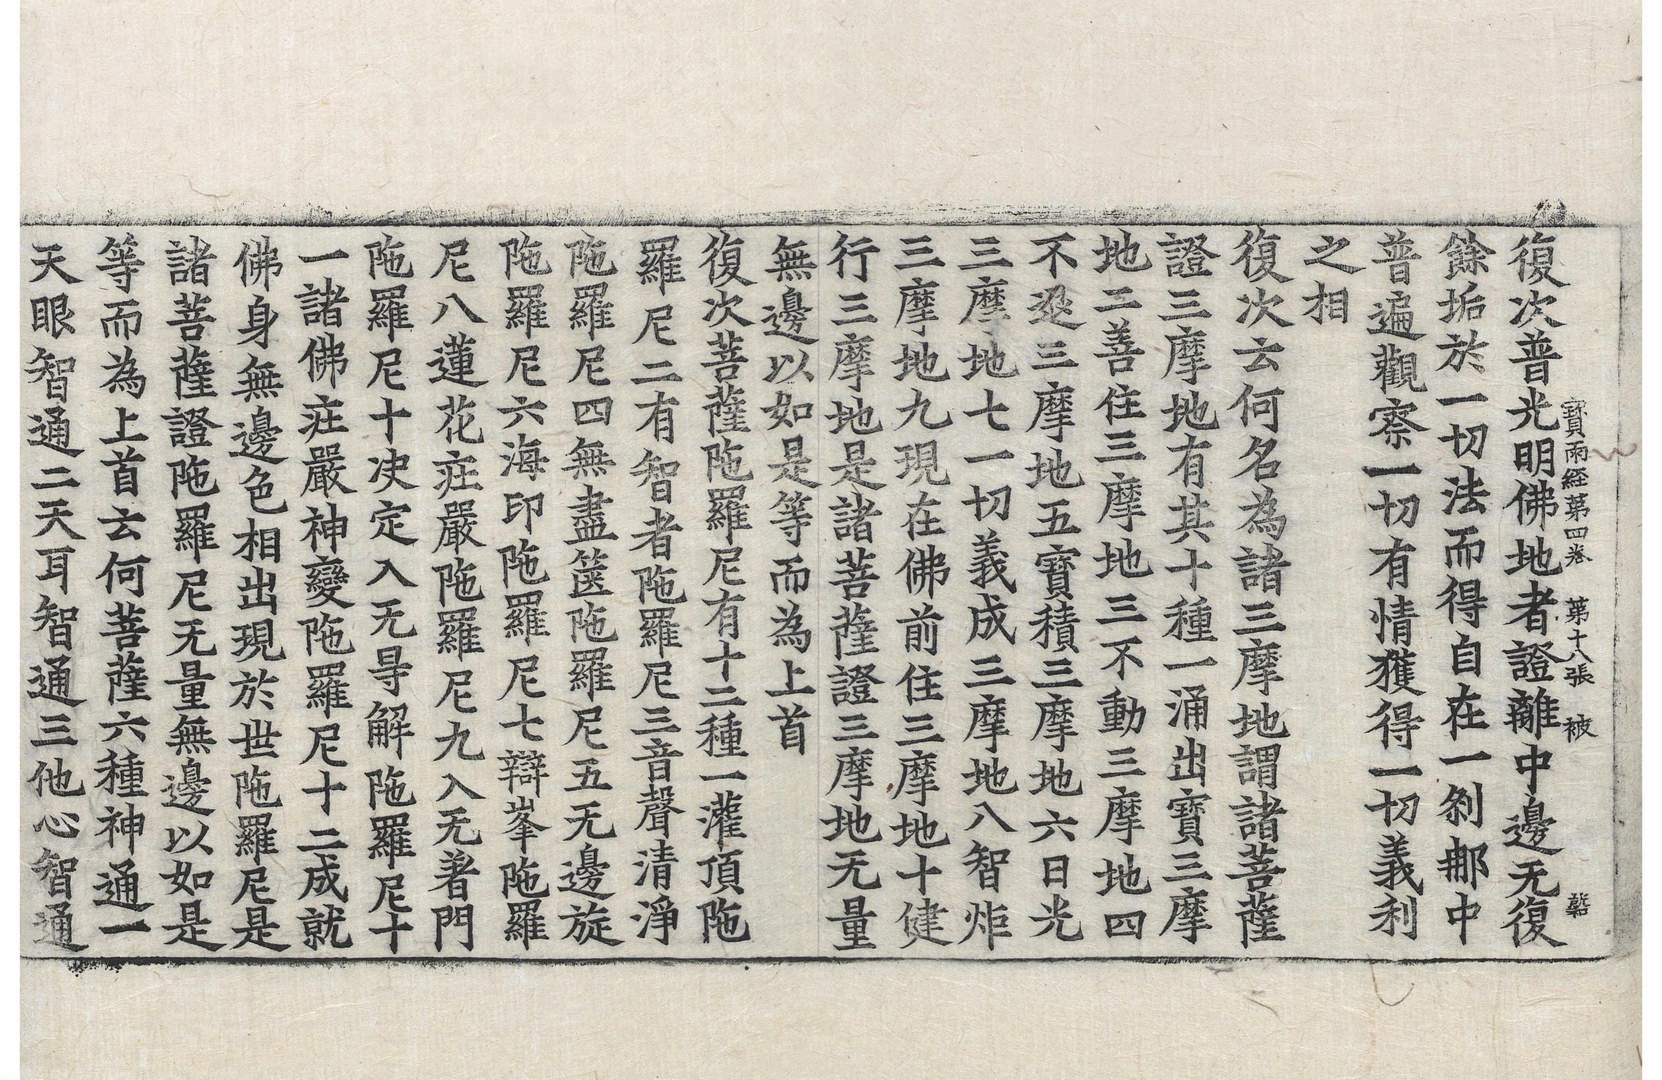 寶雨經第四卷　第十八張　被
復次普光明佛地者證離中邊无復
餘垢於一切法而得自在一剎那中
普遍觀察一切有情獲得一切義利
之相
復次云何名為諸三摩地謂諸菩薩
證三摩地有其十種一涌出寶三摩
地二善住三摩地三不動三摩地四
不退三摩地五寶積三摩地六日光
三摩地七一切義成三摩地八智炬
三摩地九現在佛前住三摩地十健
行三摩地是諸菩薩證三摩地无量
無邊以如是等而為上首
復次菩薩陁羅尼有十二種一灌頂陁
羅尼二有智者陁羅尼三音聲清淨
陁羅尼四無盡篋陁羅尼五无邊旋
陁羅尼六海印陁羅尼七辯峯陁羅
尼八蓮花疘嚴陁羅尼九入无著門
陁羅尼十决定入无㝵解陁羅尼十
一諸佛疘嚴神變陁羅尼十二成就
佛身無邊色相出現於世陁羅尼是
諸菩薩證陁羅尼无量無邊以如是
等而為上首云何菩薩六種神通一
天眼智通二天耳智通三他心智通